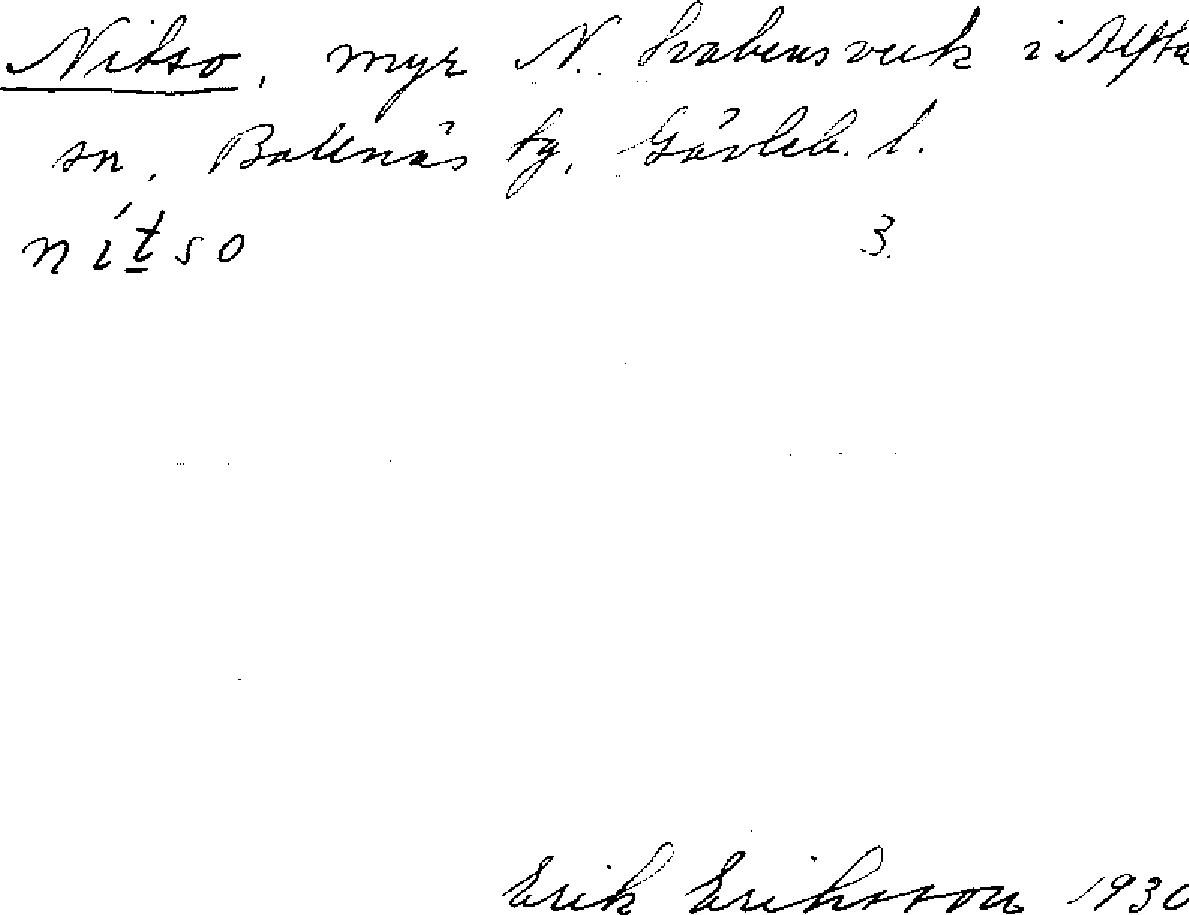 Nitso, myr N. Grabensverk i Alfta
sn, Bollnäs tg, Gävleb. l.
nítso 3.
Erik Eriksson 1930